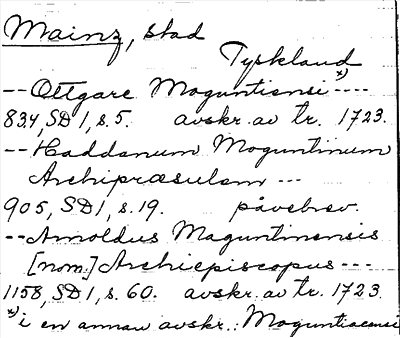 Mainz, stad
Tyskland
-- Otgare Moguntiensi *) ----
834, SD 1, s. 5. avskr. av tr. 1723.
-- Haddanum Moguntinum
Archipræsulem ---
905, SD 1, s. 19. påvebrev
-- Arnoldus Maguntinensis
[nom.] Archiepiscopus ---
1158, SD 1, s. 60. avskr. av tr. 1723.
*) i en annan avskr.: Moguntiacensi